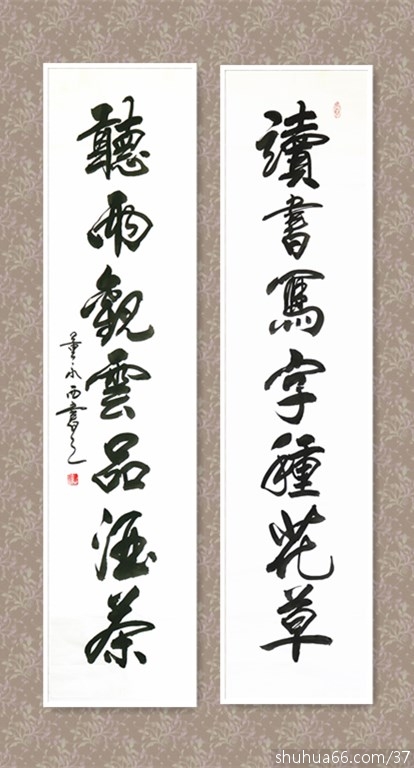 讀書寫字種花草
聽雨觀雲品酒茶
董永西書之
shuhua66.com/37